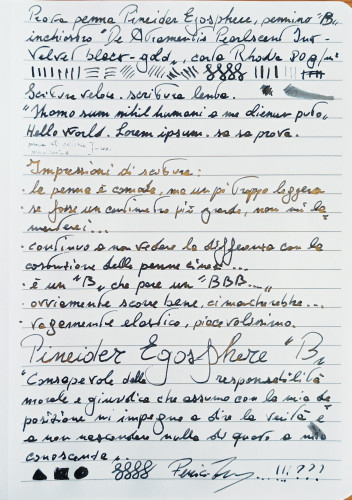 Prova penna Pineider Egosphere, pennino "B"
inchiostro "De Atramentis Pearlescent Ink -
Velvet black-gold", carta Rhodia 80 g/m²
Scrittura veloce. scrittura lenta.
"Homo sum nihil humani a me alienum puto"
Hello World. Lorem ipsum. sa sa prova.
Impressioni di scrittura:
· la penna è comoda, ma un pò troppo leggera
· se fosse un centimetro più grande, non mi la
menterei...
· continuo a non vedere la differenza con la
costruzione delle penne cinesi...
· è un "B", che pare un "BBB..."
· ovviamente scorre bene, ci mancherebbe...
· vagamente elastico, piacevolissimo.
Pineider Egosphere "B"
"Consapevole della responsabilità
morale e giuridica che assumo con la mia de
posizione mi impegno a dire la verità e
a non nascondere nulla di quanto a mia
conoscenza".
...!!???